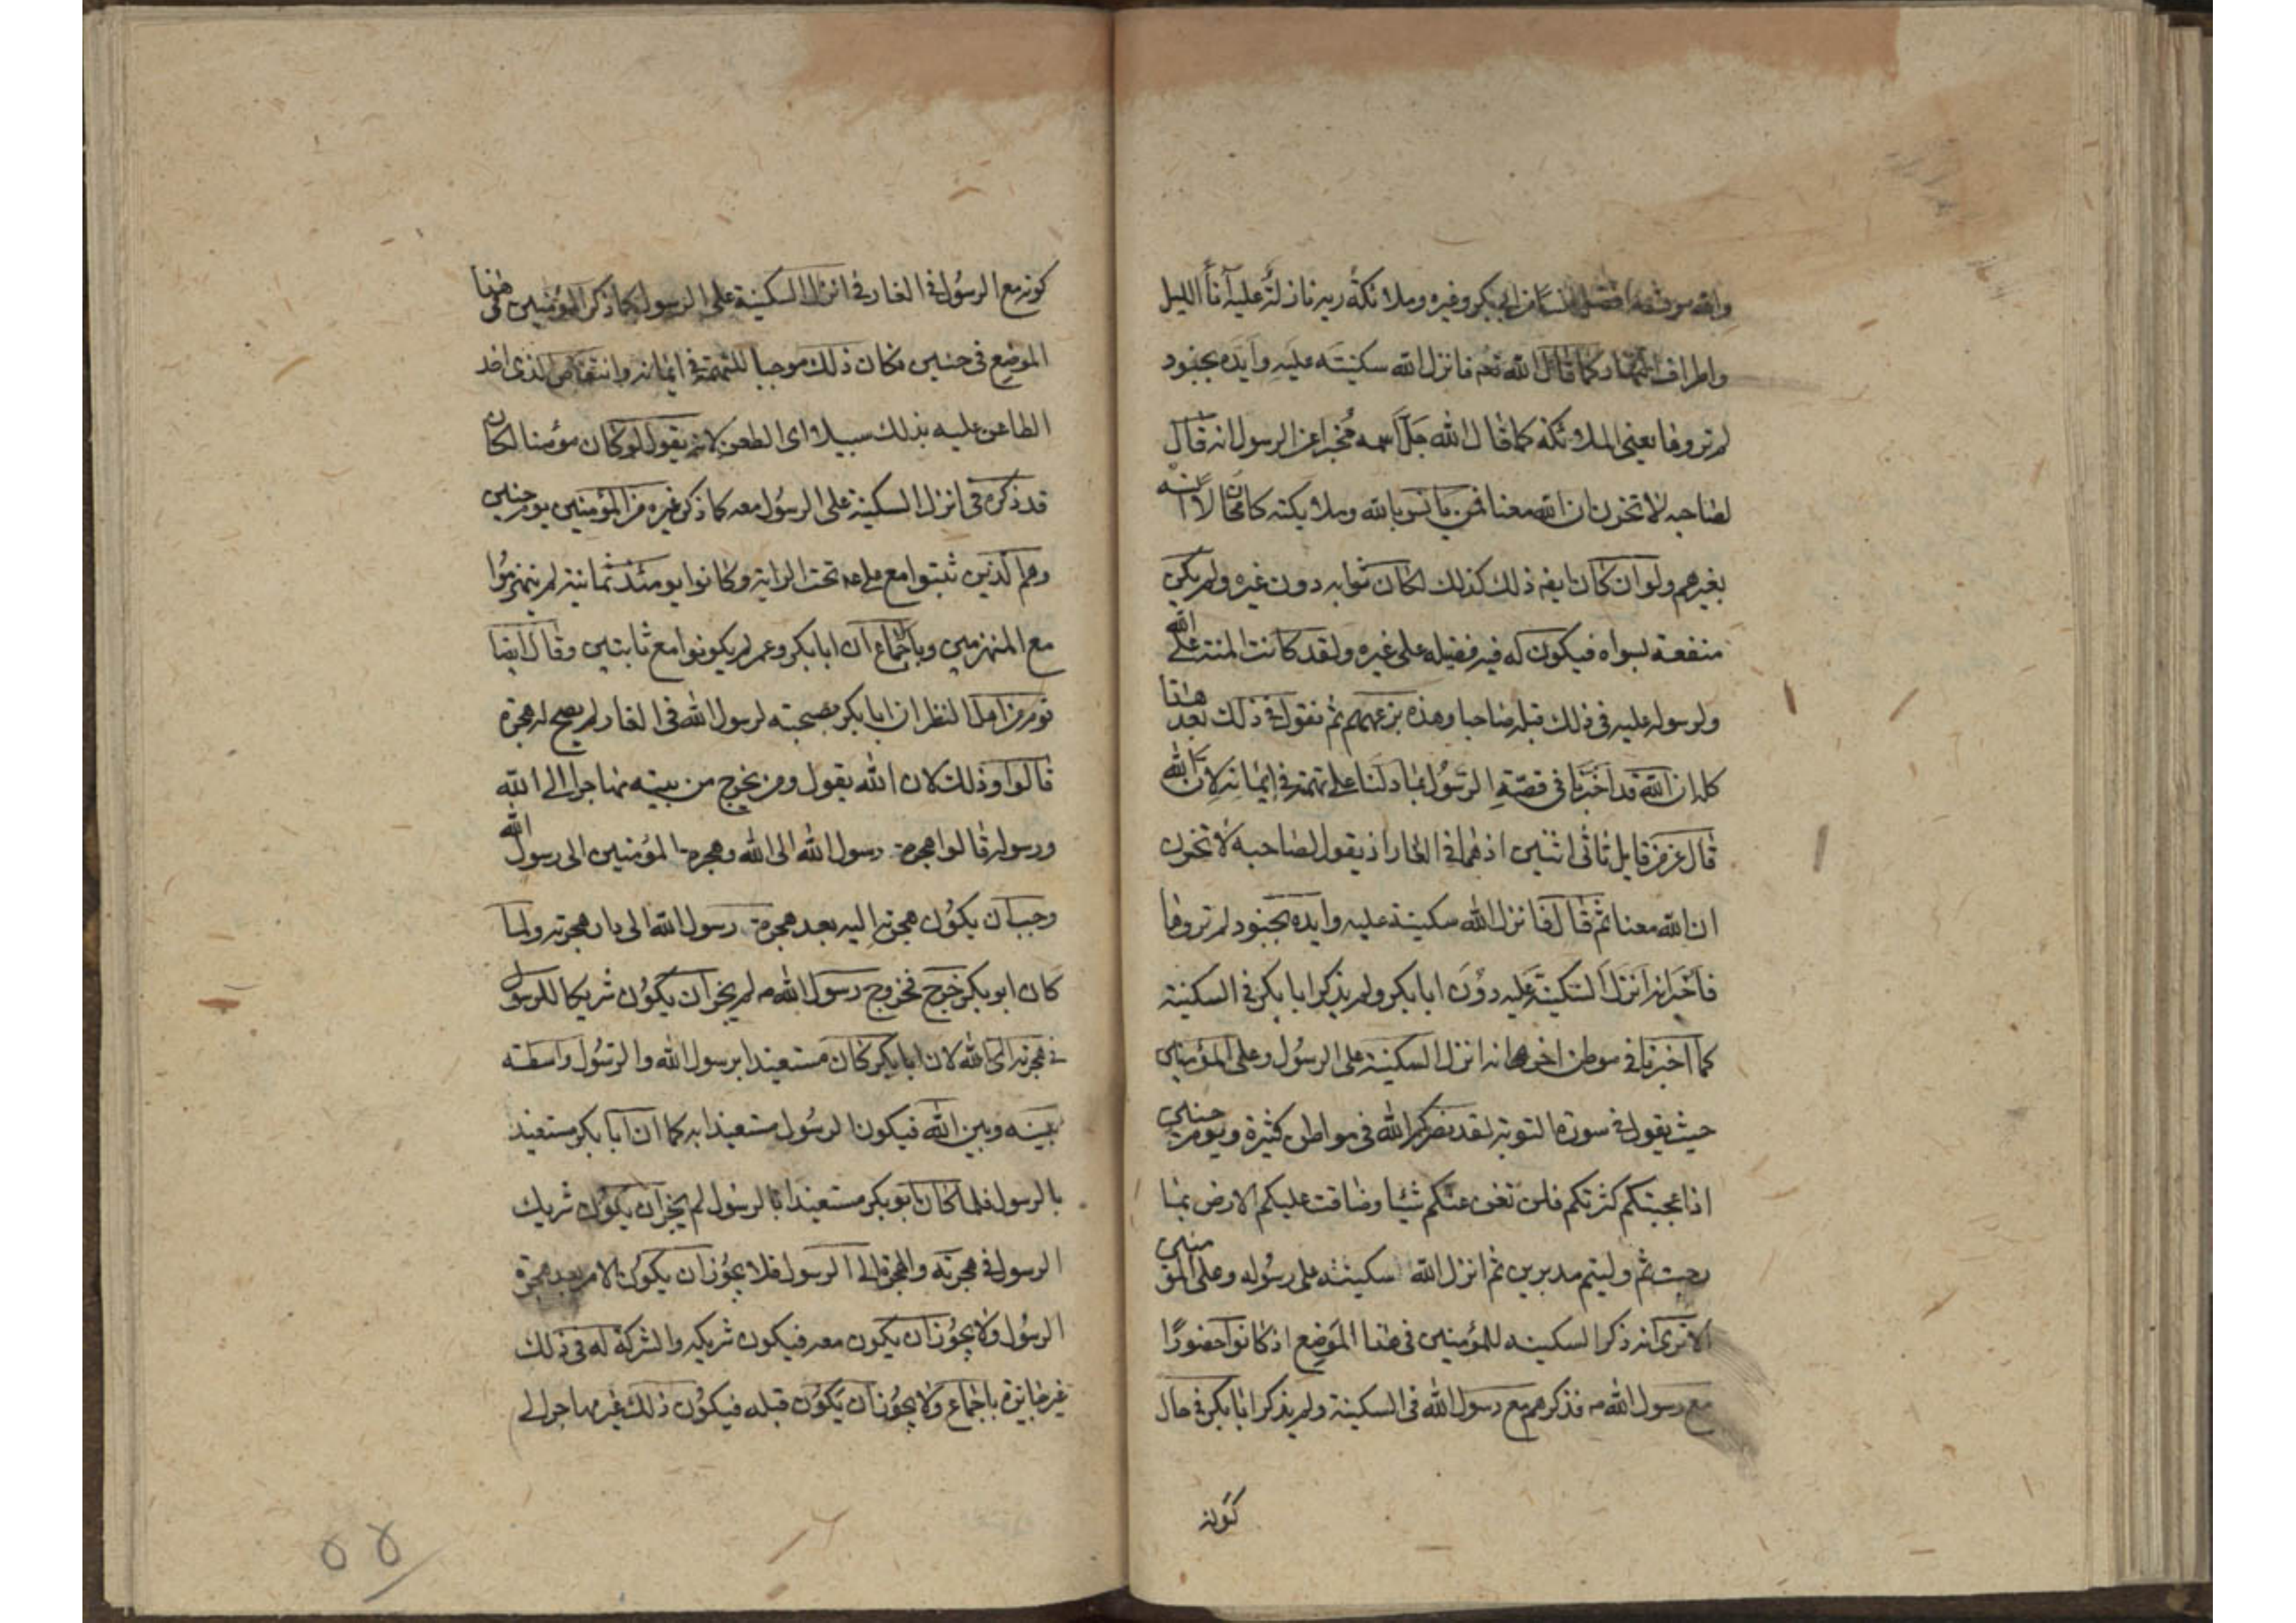 والله عز وجل افضل انسا من ابي بكر وغيره وملائكة ربه نازلة عليه آناأ الليل
واطراف النهار كما قال الله تعم فانزل الله سكينته عليه وايده بجنود
لم تروها يعني الملائكة كما قال الله جل اسمه مخبرا عن الرسول انه قال
لصاحبه لا تحزن ان الله معنا فمن يانس بالله وملايكته كان محالا انسه
بغيرهم ولو ان كان ايضه ذلك كذلك لكان ثوابه دون غيره ولم يكن
منفعة لسواه فيكون له فيه فضيله على غيره ولقد كانت المنة لله على
ولرسوله عليه في ذلك قبله صاحبا وهذه بزعمهم ثم نقول في ذلك بعد هذا
كله ان الله قد اخبرنا في قصّة الرسول بما دلنا على تهمته في ايمانه لان الله
قال عز من قايل ثاني اثنين اذ هما في الغار اذ يقول لصاحبه لا تحزن
ان الله معنا ثم قال فانزل الله سكينته عليه وايده بجنود لم تروها
فاخبر انه انزل السكينة عليه دون ابا بكر ولم يذكر ابا بكر في السكينة
كما اخبرنا في موطن اخر انه انزل السكينة على الرسول وعلى المؤمنين
حيث يقول في سورة التوبة لقد نصركم الله في مواطن كثيرة ويوم حنين
اذ اعجبتكم كثرتكم فلن تغن عنكم شيئا وضاقت عليكم الارض بما
رحبت ثم وليتم مدبرين ثم انزل الله سكينته على رسوله وعلى المؤمنين
الا ترى انه ذكر السكينه للمؤمنين في هذا الموضع اذ كانوا حضورًا
مع رسول الله ص فذكرهم مع رسول الله في السكينة ولم يذكر ابا بكر في حال
كونه
كونه مع الرسول في الغار في انزل السكينة على الرسول كما ذكر المؤمنين في هذا
الموضع في حنين فكان ذلك موجبا للتهمة في ايمانه وانتقاص الذي اخذ
الطاعن عليه بذلك سبيلا الى الطعن لانه يقول لو كان مؤمنا لكان
قد ذكره في انزل السكينة على الرسول معه كما ذكر غيره من المؤمنين يوم حنين
وهم الذين ثبتوا مع علي ع تحت الراية وكانوا يومئذ ثمانية لم ينهزموا
مع المنهزمين وباجماع ان ابا بكر وعمر لم يكونوا مع ثابتين وقال ايضا
قوم من اهل النظر ان ابا بكر بصحبته لرسول الله في الغار لم يصح له هجرة
قالوا وذلك لان الله يقول ومن يخرج من بيته مهاجرا الى الله
ورسوله قالوا هجرة رسول الله الى الله وهجرة المؤمنين الى رسول الله
وجب ان يكون هجرته اليه بعد هجرة رسول الله الى دار هجرته ولما
كان ابو بكر خرج بخروج رسول الله ص لم يجز ان يكون شريكا للرسول
في هجرته الى الله لان ابا بكر كان مستعيذا برسول الله والرسول واسطته
بينه وبين الله فيكون الرسول مستعيذا به كما ان ابا بكر مستعيذ
بالرسول فلما كان ابو بكر مستعيذا بالرسول لم يجز ان يكون شريك
الرسول في هجرته والهجرة الى الرسول فلا يجوز ان يكون الا من بعد هجرة
الرسول ولا يجوز ان يكون معه فيكون شريكه والشركة له في ذلك
غير جايزة باجماع ولا يجوز ان يكون قبله فيكون ذلك غير مهاجر الى
٥٥